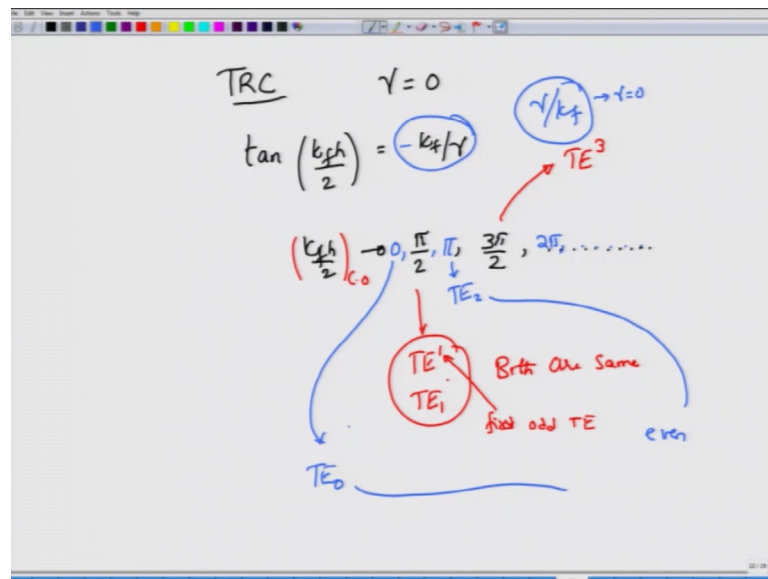 File Edit View Insert Actions Tools Help
TRC γ = 0
γ/kf → γ=0
tan (kfh/2) = - kf/γ
TE³
(kfh/2)c.o → 0, π/2, π, 3π/2, 2π, ..........
TE₂
TE¹
TE₁
Both are Same
first odd TE
even
TE₀